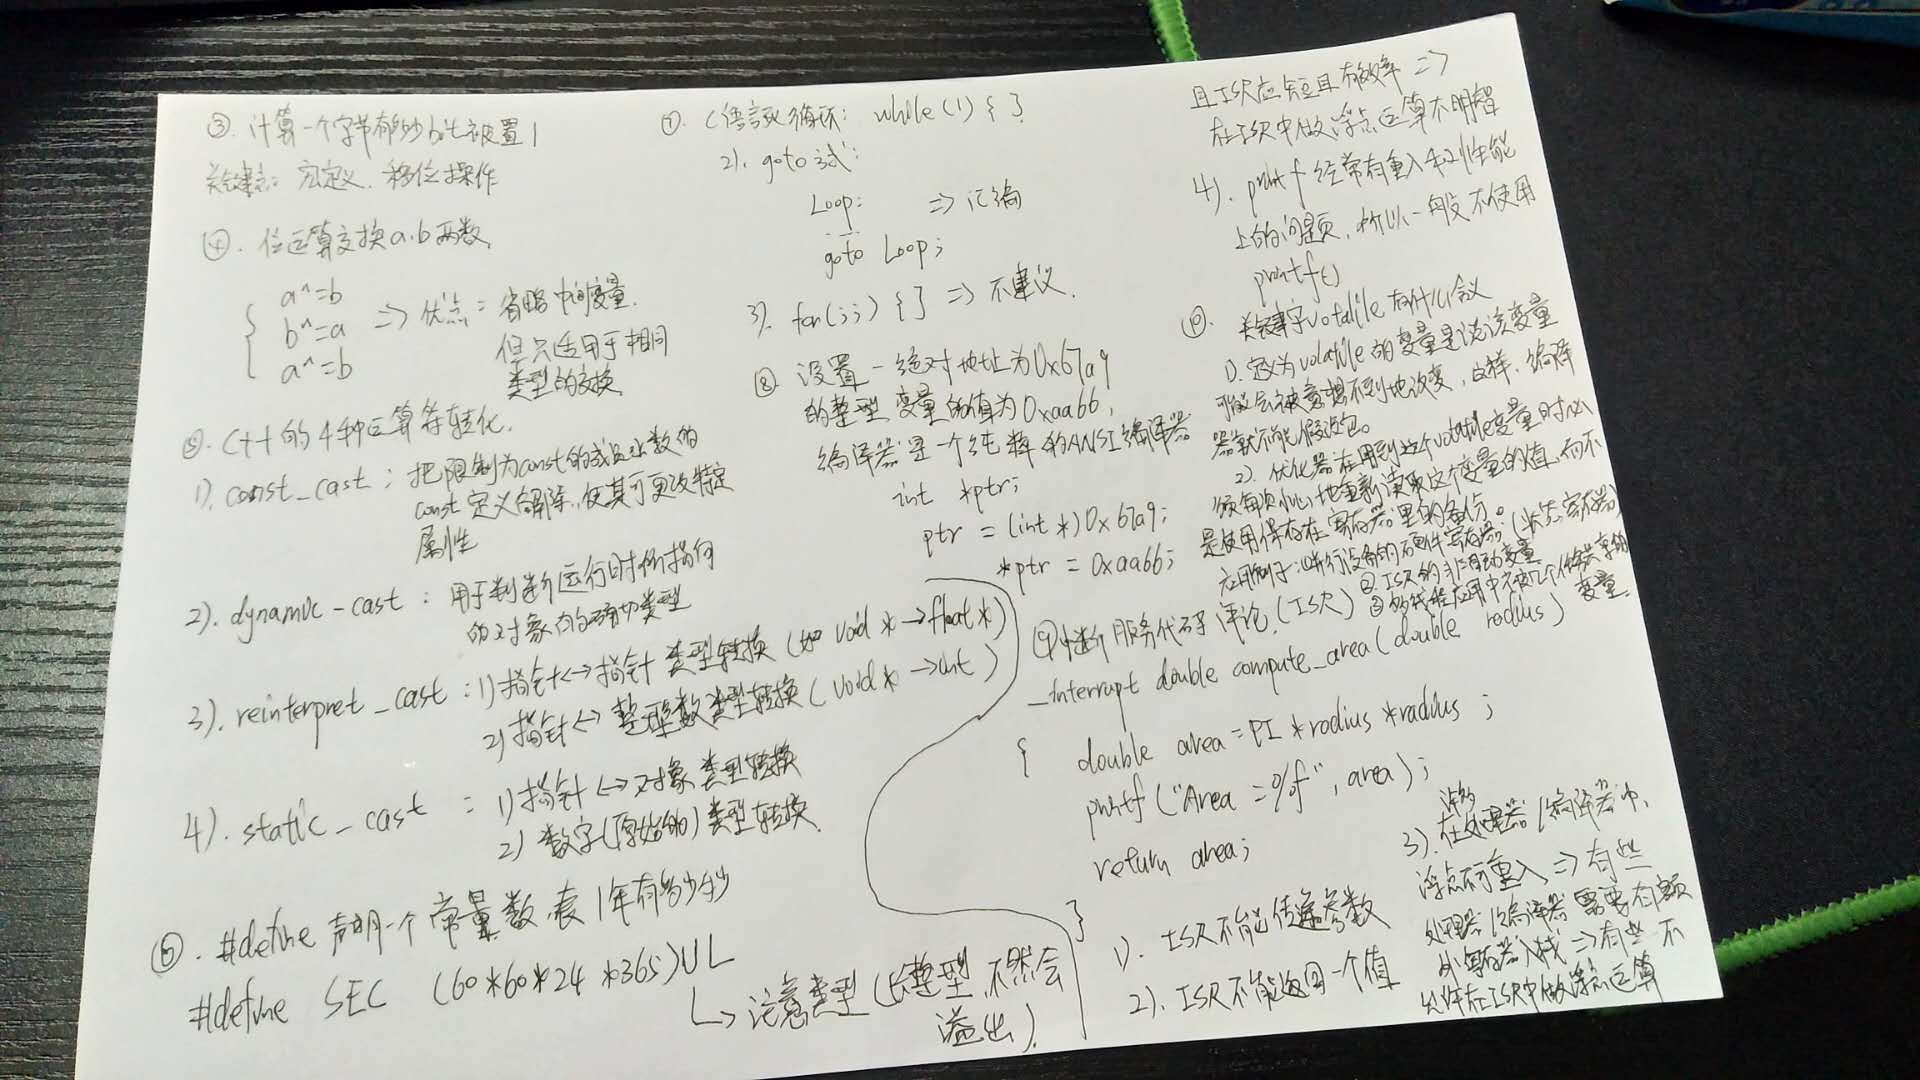 ③. 计算一个字节有多少bit被置1
关键点: 宏定义. 移位操作
④. 位运算交换a.b两数.
a^=b
b^=a
a^=b
=> 优点: 省略中间变量.
但只适用于相同
类型的交换
⑤. C++的4种运算符转化.
1). const_cast: 把限制为const的成员函数的
const定义解除,使其可更改特定
属性
2). dynamic-cast: 用于判断运行时所指向
的对象的确切类型
3). reinterpret_cast: 1) 指针<->指针 类型转换 (如 void * -> float *)
2) 指针<-> 整型数类型转换 (void * -> int)
4). static_cast: 1) 指针<->对象 类型转换
2) 数字(原始的) 类型转换.
⑥. #define 声明一个常量数,表1年有多少秒
#define SEC (60*60*24*365)UL
↳ 注意类型 (长整型,不然会
溢出).
⑦. C语言死循环: while(1) { }
2). goto 式:
Loop:
...
goto Loop;
=> 汇编
3). for(;;) { } => 不建议.
⑧ 设置一绝对地址为0x67a9
的整型变量的值为0xaa66,
编译器是一个纯粹的ANSI编译器
int *ptr;
ptr = (int *)0x67a9;
*ptr = 0xaa66;
⑨ 中断服务代码 评论.(ISR)
_interrupt double compute_area(double radius)
{ double area = PI * radius * radius ;
printf("Area = %f", area);
return area;
}
1). ISR不能传递参数
2). ISR不能返回一个值
3). 在许多处理器/编译器中,
浮点不可重入 => 有些
处理器/编译器需要有额
外寄存器入栈 => 有些不
允许在ISR中做浮点运算
且ISR应短且有效率 =>
在ISR中做浮点运算不明智
4). printf 经常有重入和性能
上的问题, 所以一般不使用
printf()
⑩. 关键字volatile 有什么含义
1). 定义为volatile的变量是说该变量
可能会被意想不到地改变, 这样, 编译
器就不能假设它。
2). 优化器在用到这个volatile变量时必
须每次小心地重新读取这个变量的值,而不
是使用保存在寄存器里的备份。
应用例子: ①并行设备的硬件寄存器; (状态寄存器)
②. ISR的非自动变量
③ 多线程应用中被几个任务共享的
变量.